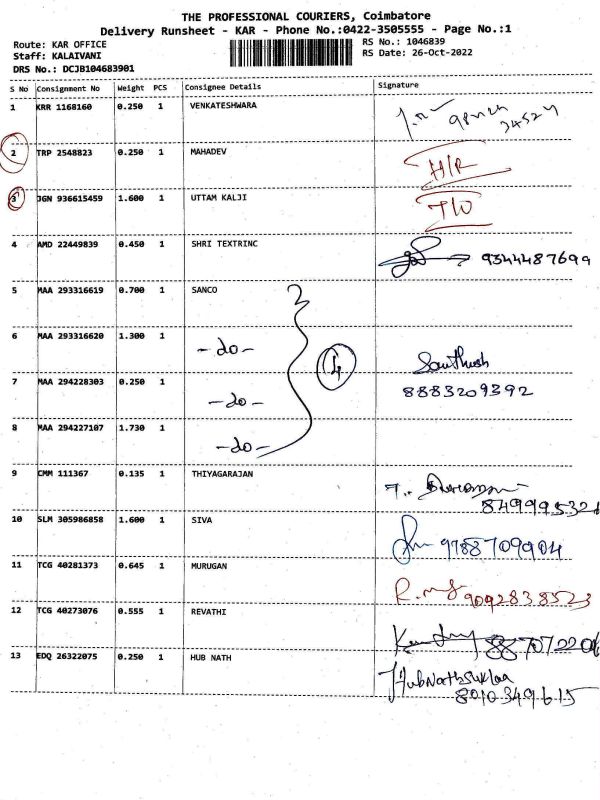 THE PROFESSIONAL COURIERS, Coimbatore
Delivery Runsheet - KAR - Phone No.:0422-3505555 - Page No.:1
Route: KAR OFFICE
Staff: KALAIVANI
DRS No.: DCJB104683901
RS No.: 1046839
RS Date: 26-Oct-2022
S No Consignment No Weight PCS Consignee Details Signature
1 KRR 1168160 0.250 1 VENKATESHWARA
2 TRP 2548823 0.250 1 MAHADEV H/R
3 JGN 936615459 1.600 1 UTTAM KALJI
4 AMD 22449839 0.450 1 SHRI TEXTRINC 9344487699
5 MAA 293316619 0.700 1 SANCO
6 MAA 293316620 1.300 1 -do- 4 Santhosh
7 MAA 294228303 0.250 1 -do- 8883209392
8 MAA 294227107 1.730 1 -do-
9 CMM 111367 0.135 1 THIYAGARAJAN
10 SLM 305986858 1.600 1 SIVA 9788709904
11 TCG 40281373 0.645 1 MURUGAN 9092838523
12 TCG 40273076 0.555 1 REVATHI
13 EDQ 26322075 0.250 1 HUB NATH HubNathSuklaa
8010349615